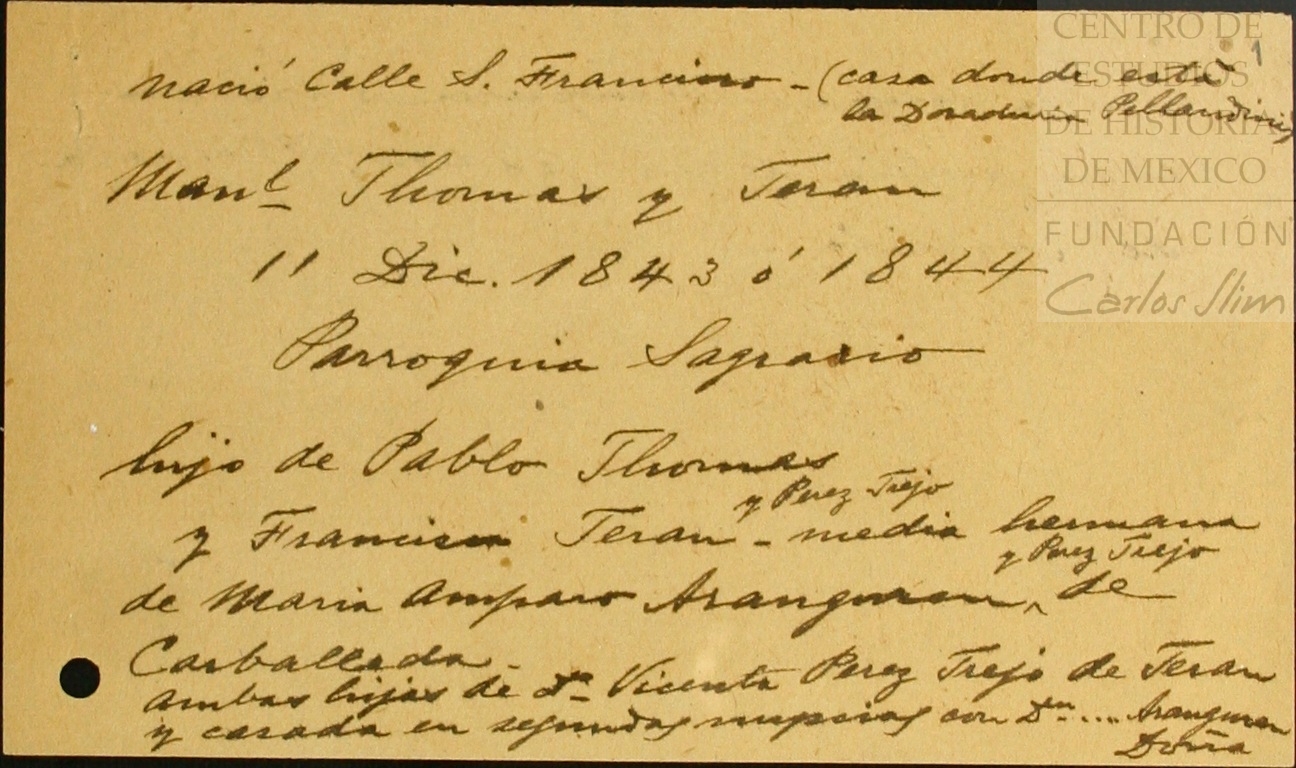 CENTRO DE
ESTUDIOS
DE HISTORIA
DE MEXICO
FUNDACIÓN
Carlos Slim
1
nació Calle S. Francisco - (casa donde está
la Doraduria Pellandini)
Manl Thomas y Teran
11 Dic. 1843 ó 1844
Parroquia Sagrario
hijo de Pablo Thomas
y Perez Trejo
y Francisca Teran - media hermana
y Perez Trejo
de Maria Amparo Aranguren, de
Carballeda -
ambas hijas de Da Vicenta Perez Trejo de Teran
y casada en segundas nupcias con Dn .... Aranguren